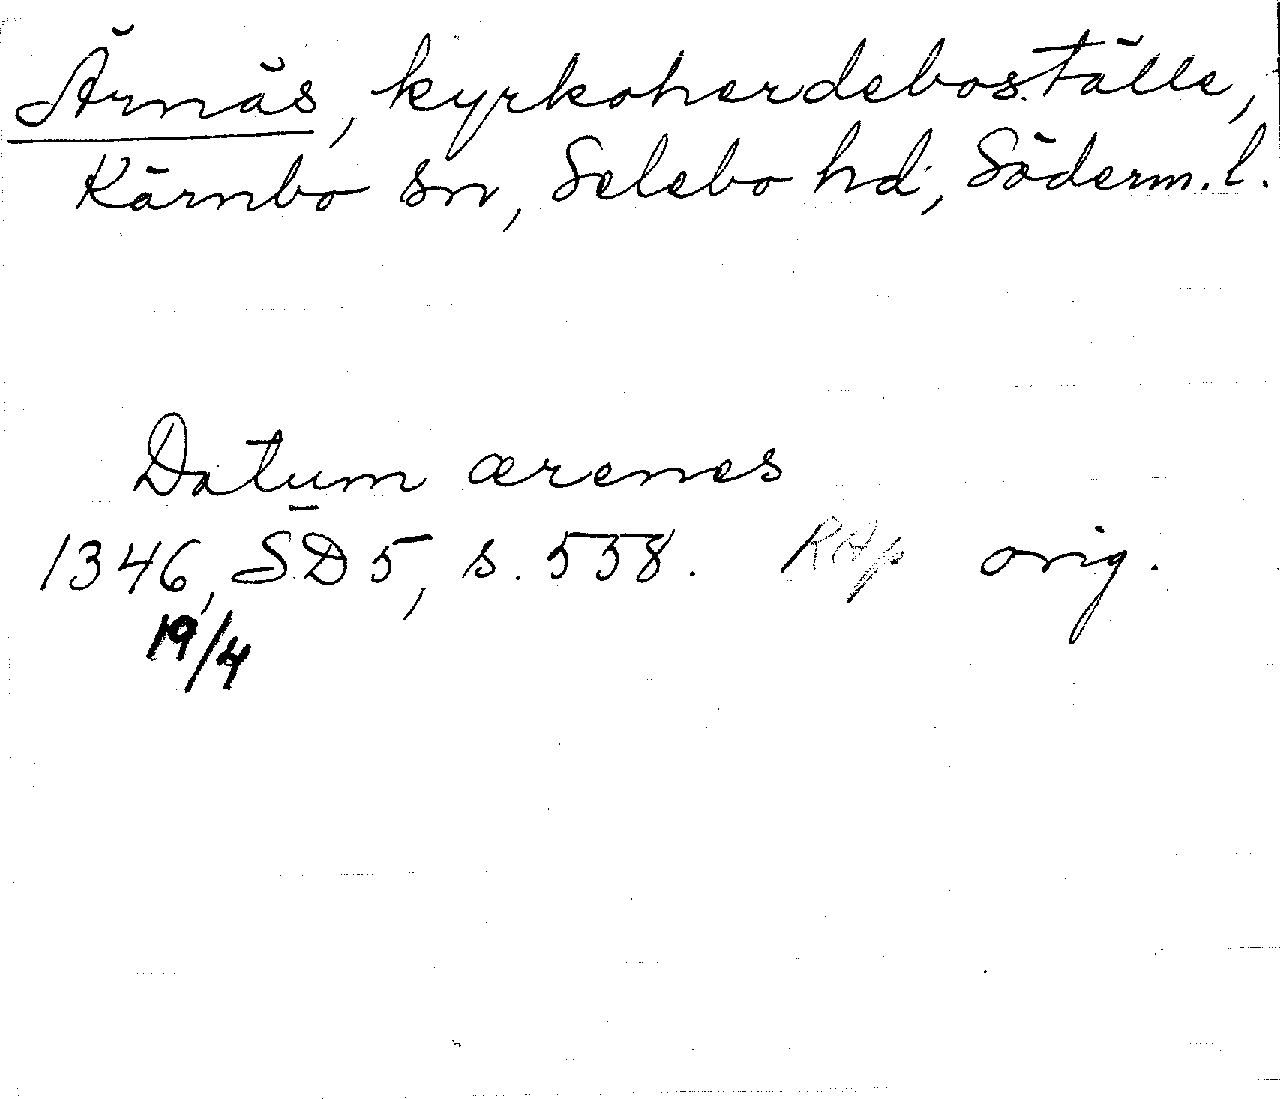 Ärnäs, kyrkoherdeboställe,
Kärnbo sn, Selebo hd, Söderm. l.
Datum ærenes
1346, SD 5, s. 558. RAp orig.
19/4